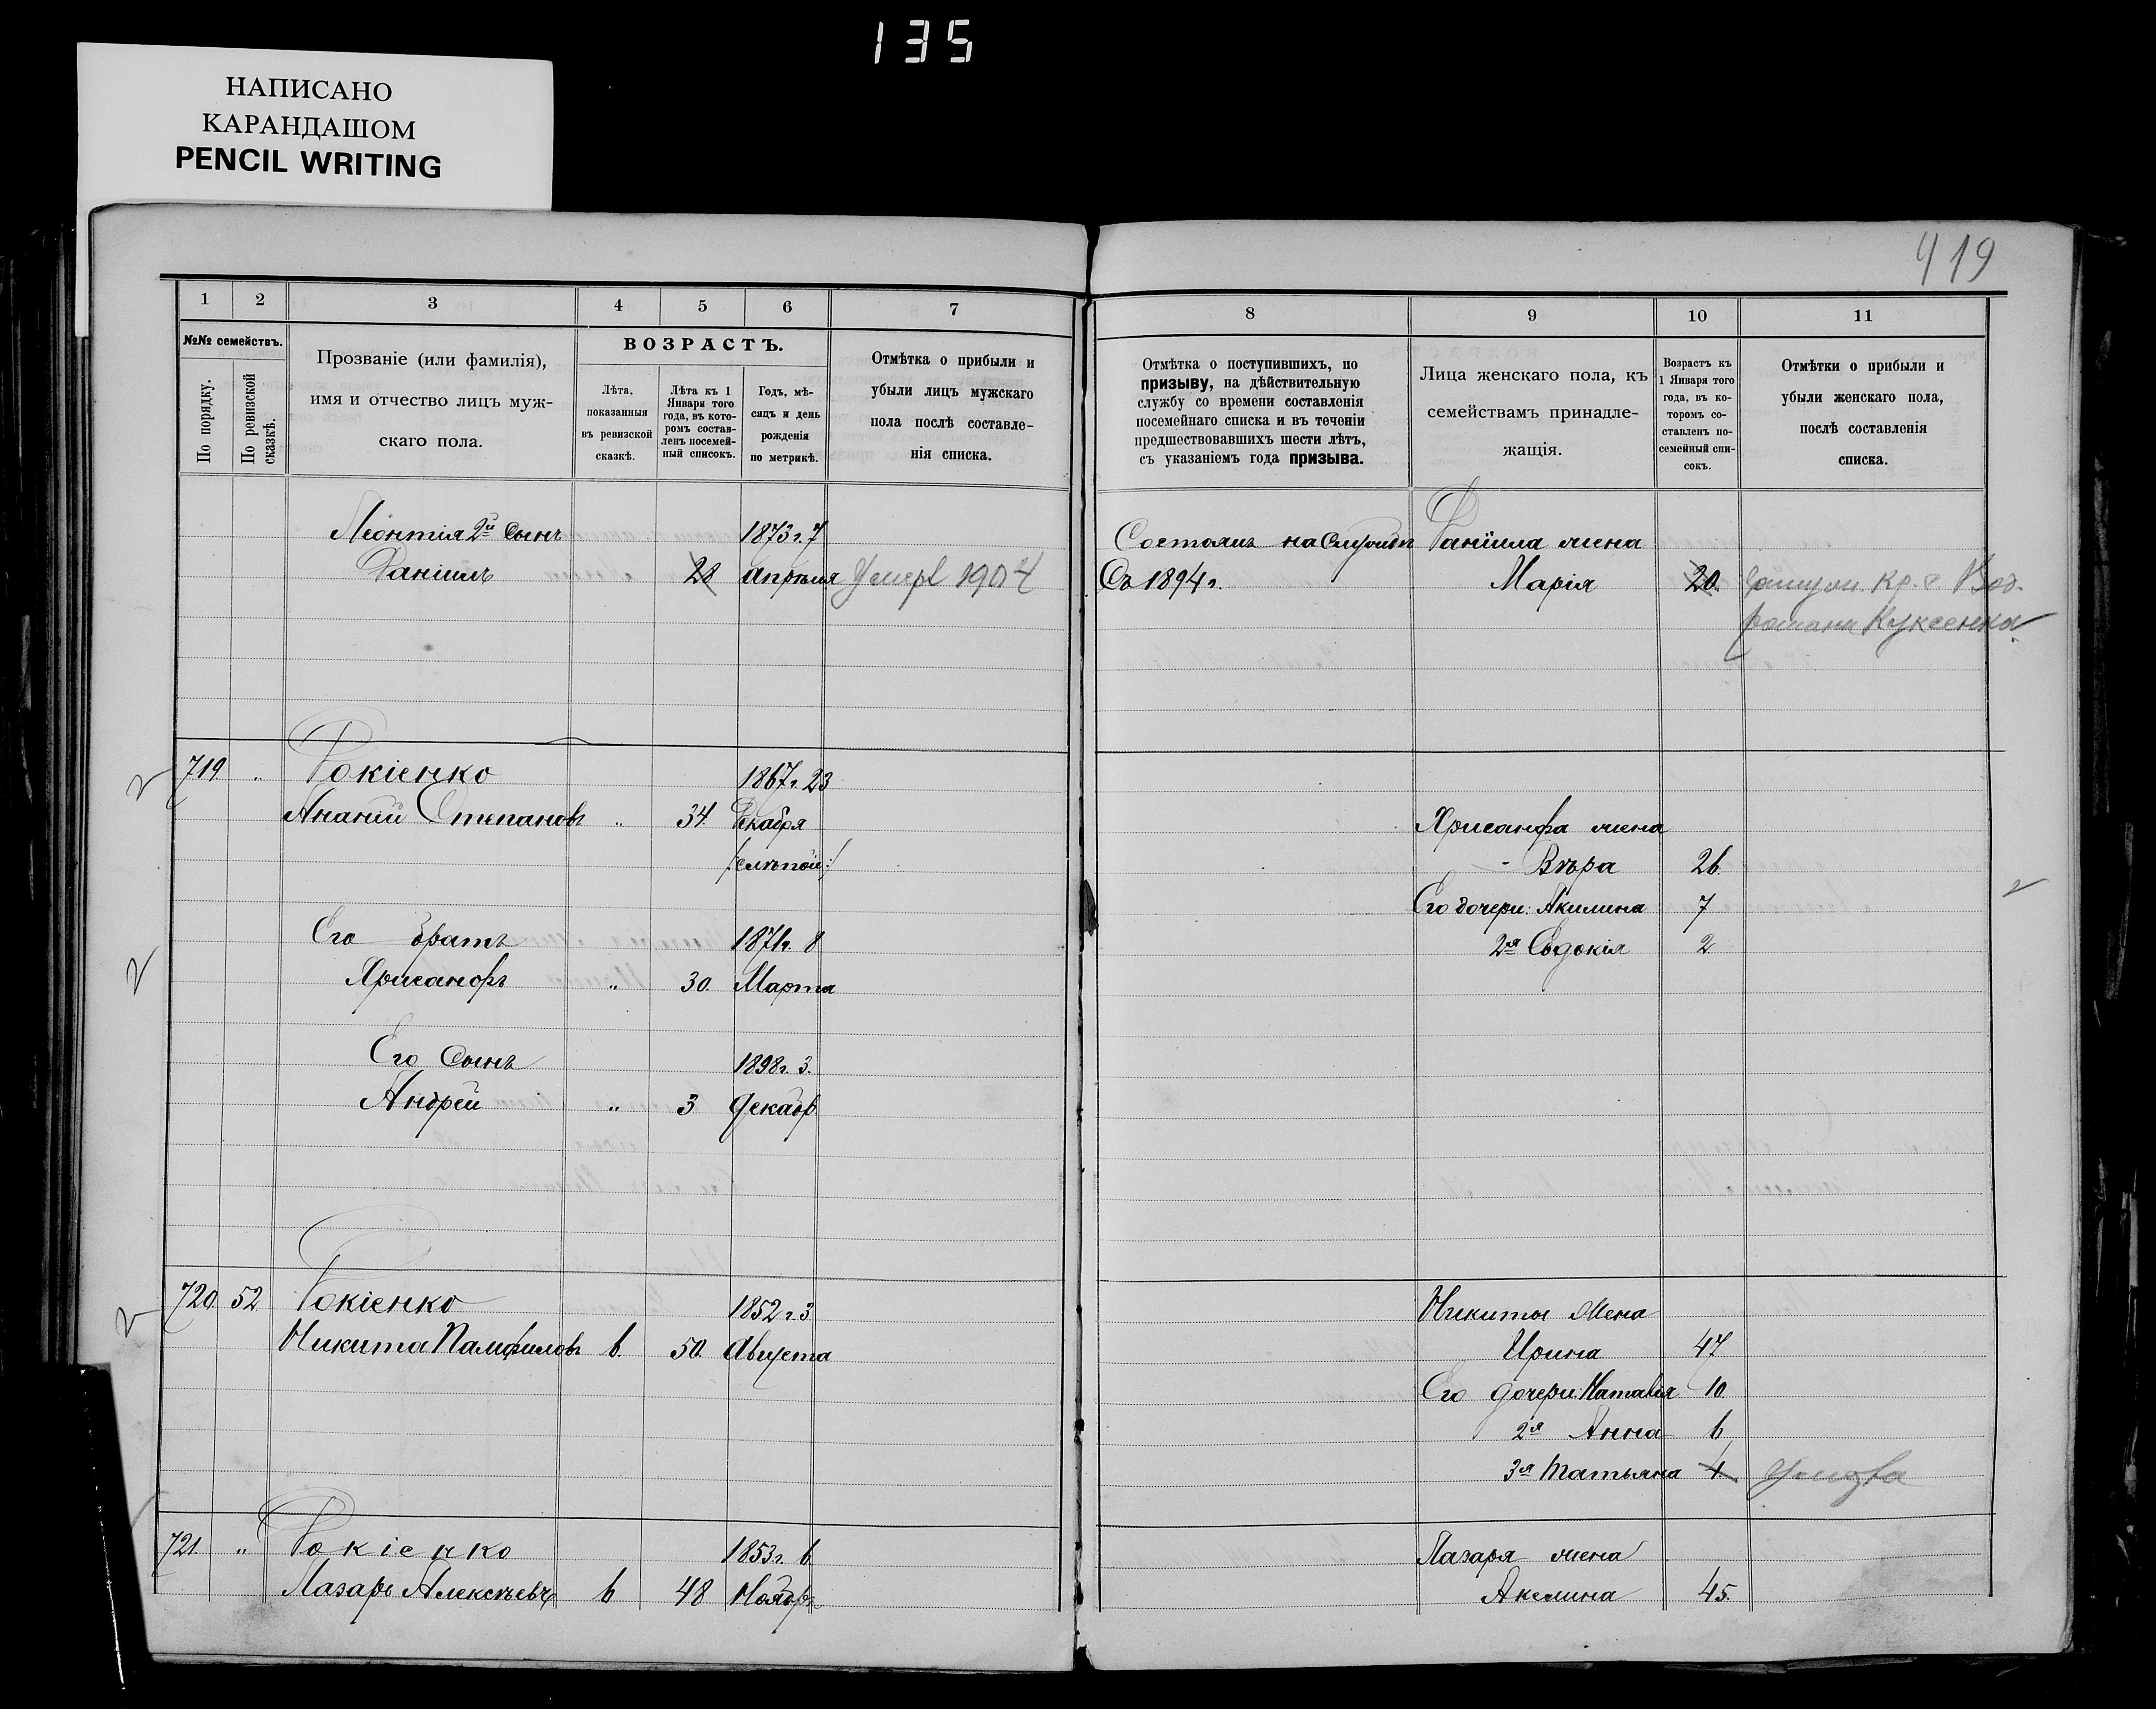 135
НАПИСАНО
КАРАНДАШОМ
PENCIL WRITING
419
1 2 3 4 5 6 7
№№ семействъ.
По порядку.
По ревизской сказкѣ.
Прозваніе (или фамилія),
имя и отчество лицъ муж-
скаго пола.
ВОЗРАСТЪ.
Лѣта,
показанныя
въ ревизской
сказкѣ.
Лѣта къ 1
Января того
года, въ кото-
ромъ состав-
ленъ посемей-
ный списокъ.
Годъ, мѣ-
сяцъ и день
рожденія
по метрикѣ.
Отмѣтка о прибыли и
убыли лицъ мужскаго
пола послѣ составле-
нія списка.
Леонтія 2й Сынъ 1873 г. 7
Даніилъ 28 Апрѣля Умеръ 1904
719 " Фокіенко 1867 г. 23
Ананій Степановъ " 34. Декабря
/:слѣпой:/
Его братъ 1871 г. 8
Хрисанфъ " 30. Марта
Его Сынъ 1898 г. 3.
Андрей " 3 Декабр
720. 52 Фокіенко 1852 г. 3
Никита Памфиловъ 6. 50. Августа
721. " Фокіенко 1853 г. 6
Лазарь Алексѣевъ 6 48 Ноябр
8 9 10 11
Отмѣтка о поступившихъ, по
призыву, на дѣйствительную
службу со времени составленія
посемейнаго списка и въ теченіи
предшествовавшихъ шести лѣтъ,
съ указаніемъ года призыва.
Лица женскаго пола, къ
семействамъ принадле-
жащія.
Возрастъ къ
1 Января того
года, въ ко-
торомъ со-
ставленъ по-
семейный спи-
сокъ.
Отмѣтки о прибыли и
убыли женскаго пола,
послѣ составленія
списка.
Состоялъ на Службѣ Даніила жена
Съ 1894 г. Марія 20. кр. с.
Куксенка
Хрисанфа жена
- Вѣра 26.
Его дочери: Акилина 7
2я Евдокія 2
Никиты Жена
Ирина 47
Его дочери: Наталія 10.
2я Анна 6
3я Татьяна 4. Умерла
Лазаря жена
Акелина 45.